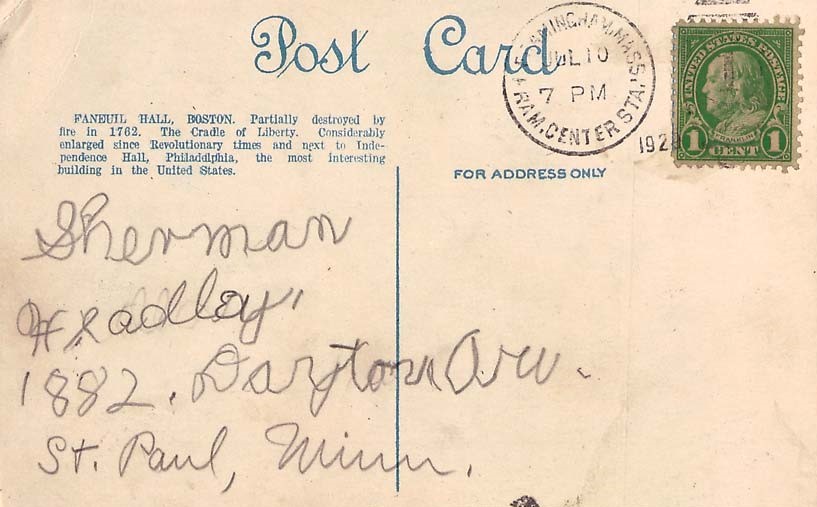 Post Card
FRAMINGHAM, MASS.
JUL 10
7 PM
FRAM. CENTER STA.
192
UNITED STATES POSTAGE
FRANKLIN
1 CENT 1
FANEUIL HALL, BOSTON. Partially destroyed by
fire in 1762. The Cradle of Liberty. Considerably
enlarged since Revolutionary times and next to Inde-
pendence Hall, Philadelphia, the most interesting
building in the United States.
FOR ADDRESS ONLY
Sherman
Headley,
1882. Dayton Ave.
St. Paul, Minn.